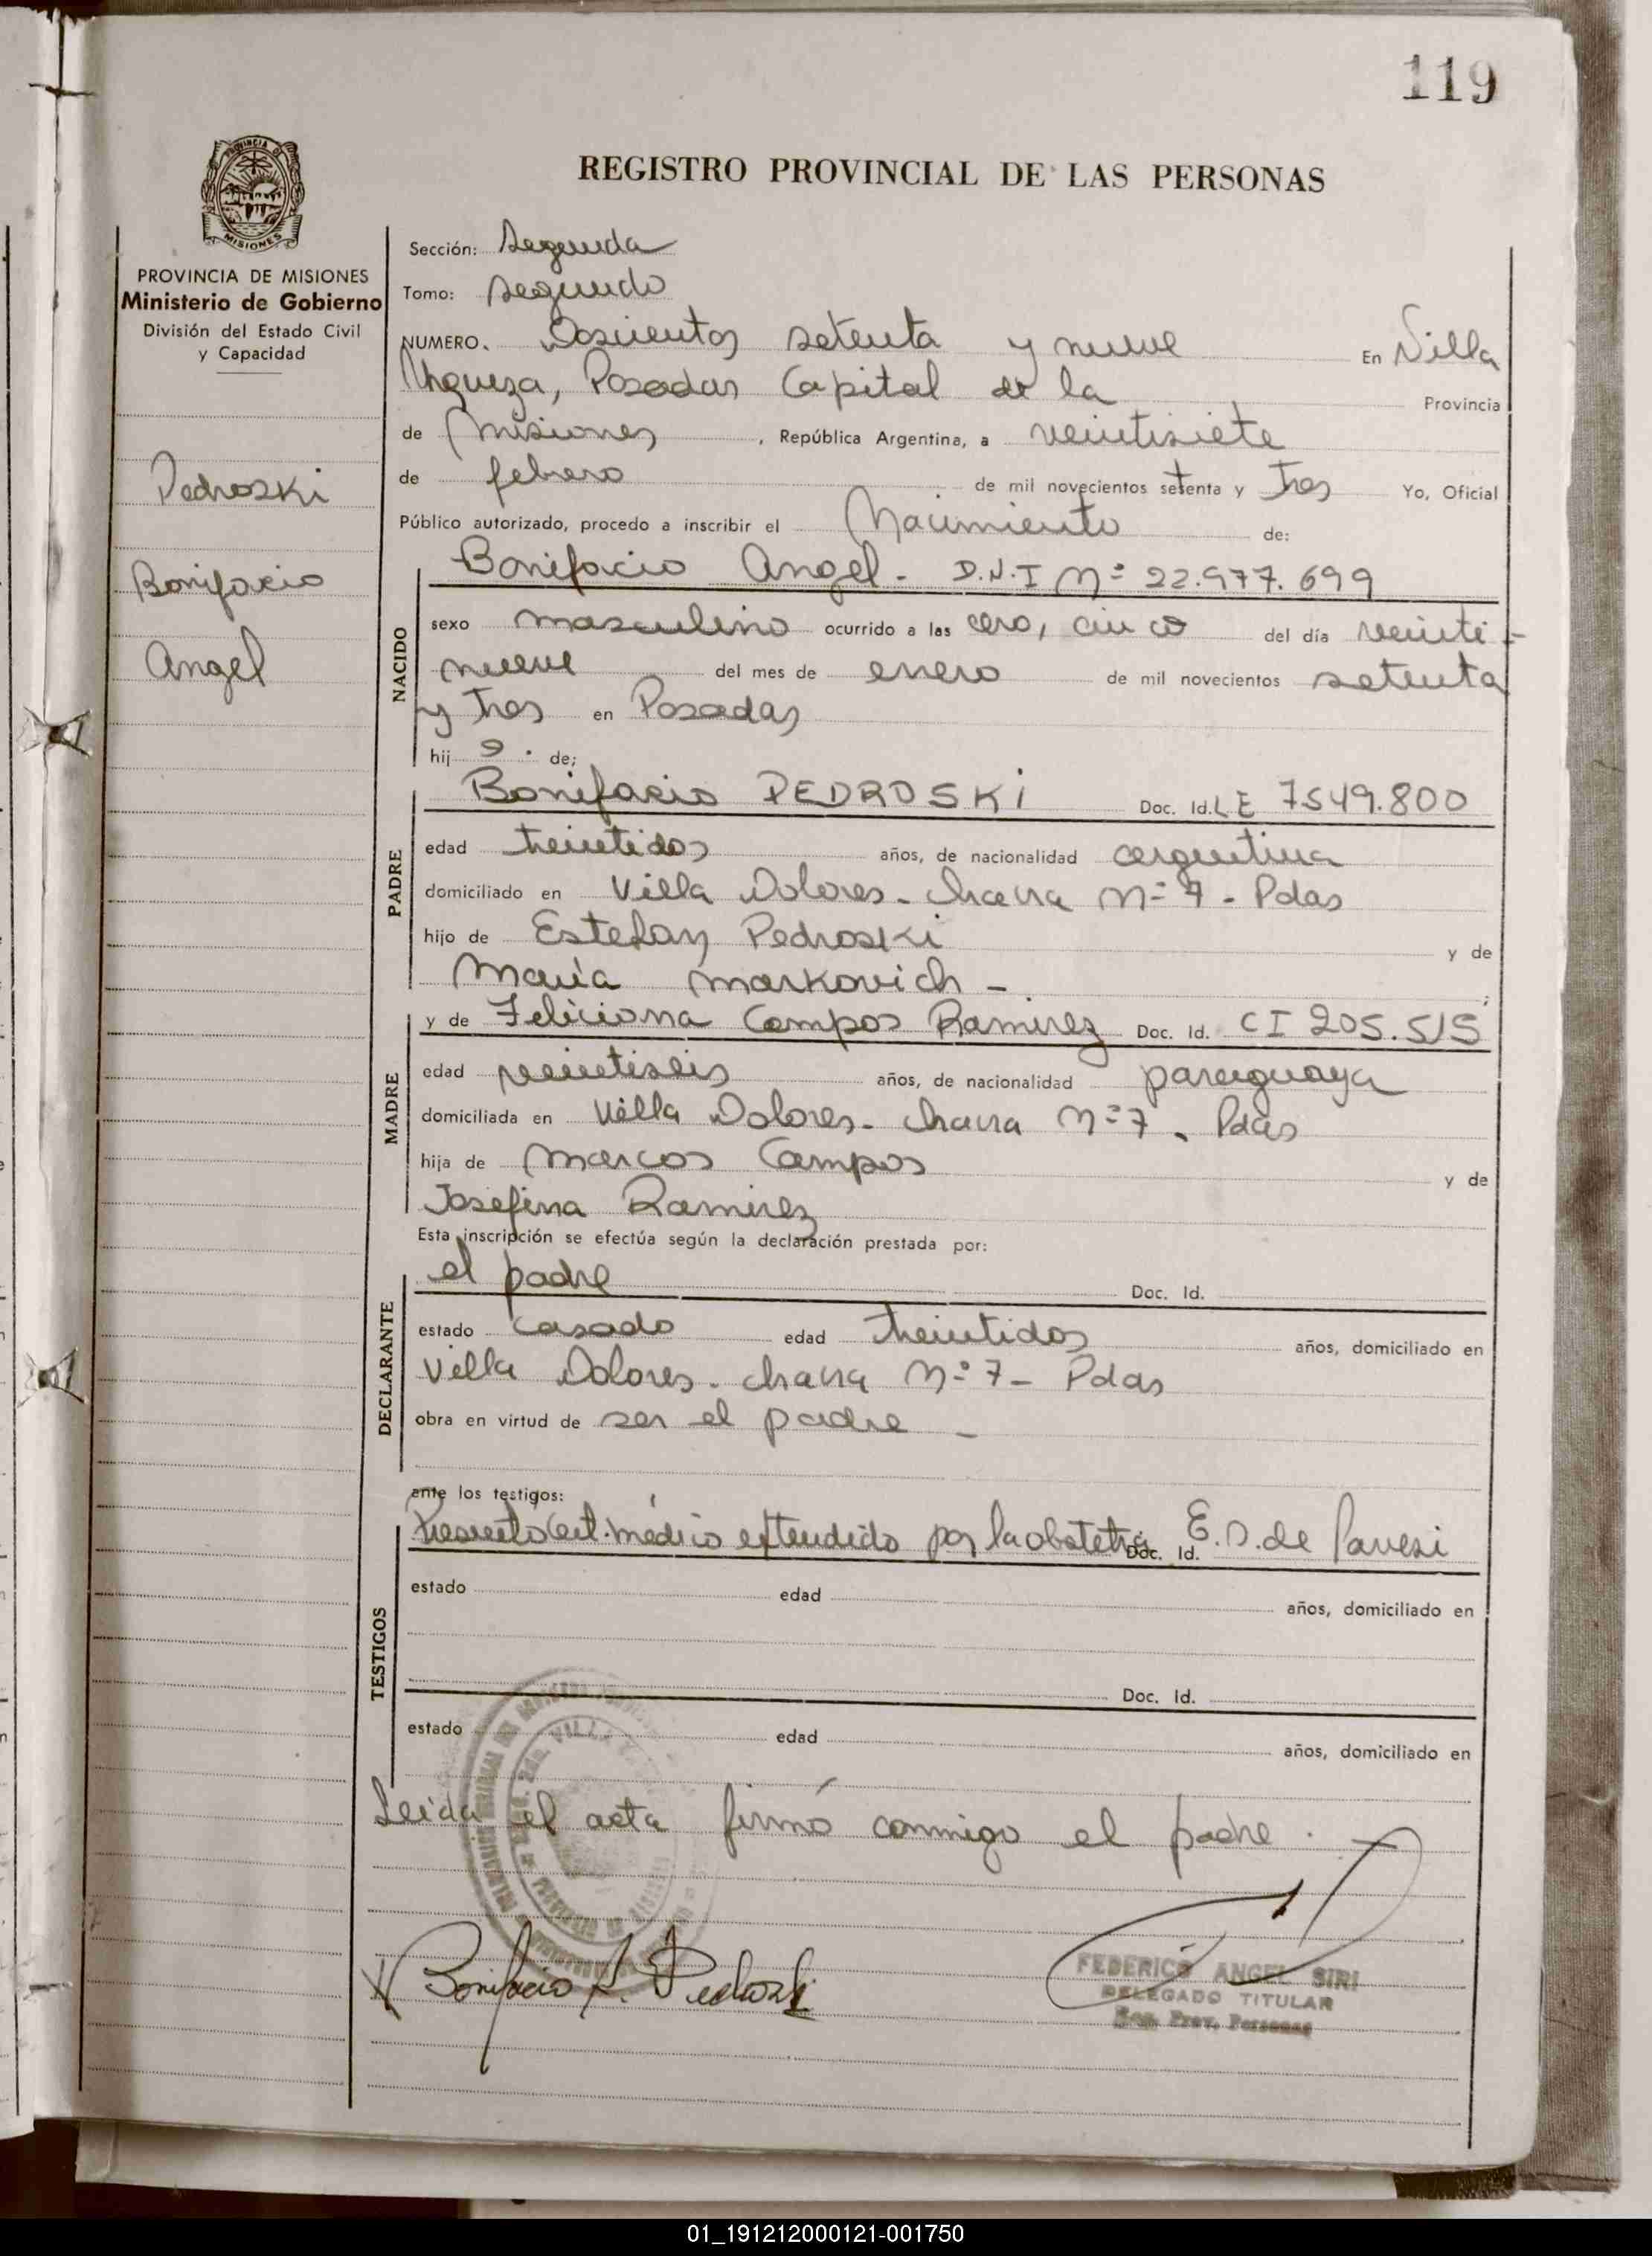 119
REGISTRO PROVINCIAL DE LAS PERSONAS
MISIONES
PROVINCIA DE MISIONES
Ministerio de Gobierno
División del Estado Civil
y Capacidad
Pedroski
Bonifacio
Angel
Sección: Segunda
Tomo: Segundo
NUMERO. Doscientos setenta y nueve En Villa
Urquiza, Posadas Capital de la Provincia
de Misiones, República Argentina, a veintisiete
de febrero de mil novecientos setenta y tres Yo, Oficial
Público autorizado, procedo a inscribir el Nacimiento de:
Bonifacio Angel - D.N.I Nº 22.977.699
NACIDO
sexo masculino ocurrido a las cero, cinco del día veinti-
nueve del mes de enero de mil novecientos setenta
y tres en Posadas
hij o. de;
Bonifacio PEDROSKI Doc. Id. L E 7.549.800
PADRE
edad treintidos años, de nacionalidad argentina
domiciliado en Villa Dolores - chacra Nº 7 - Pdas
hijo de Estefan Pedroski y de
María Markovich - ;
y de Feliciana Campos Ramirez Doc. Id. CI 205.515
MADRE
edad veintiseis años, de nacionalidad paraguaya
domiciliada en Villa Dolores - chacra Nº 7 - Pdas
hija de Marcos Campos y de
Josefina Ramirez
Esta inscripción se efectúa según la declaración prestada por:
el padre Doc. Id.
DECLARANTE
estado casado edad treintidos años, domiciliado en
Villa Dolores - chacra Nº 7 - Pdas
obra en virtud de ser el padre -
ante los testigos:
Presento Cert. médico extendido por la obstetra Doc. Id. E. D. de Pavesi
TESTIGOS
estado edad años, domiciliado en
Doc. Id.
estado edad años, domiciliado en
Leída el acta firmó conmigo el padre.
Bonifacio Pedroski
FEDERICO ANGEL SIRI
DELEGADO TITULAR
Reg. Prov. Personas
01_191212000121-001750